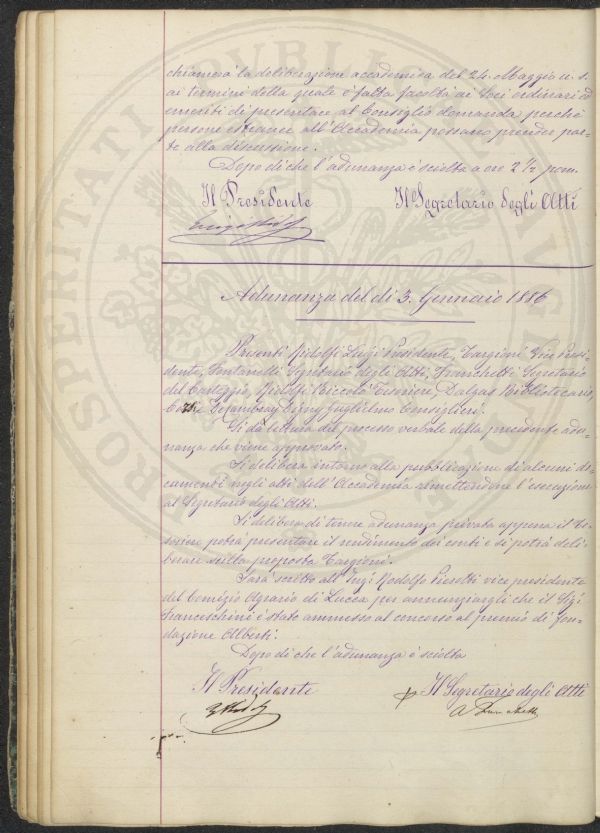 chiamerà la deliberazione accademica del 24 Maggio u. s.
ai termini della quale è fatta facoltà ai Soci ordinari ed
emeriti di presentare al Consiglio domanda perchè
persone estranee all'Accademia possano prender par-
te alla discussione.
Dopo di che l'adunanza è sciolta a ore 2 1/2 pom.
Il Presidente Il Segretario degli Atti
Adunanza del dì 3. Gennaio 1886
Presenti Ridolfi Luigi Presidente, Targioni Vice Presi-
dente, Fontanelli Segretario degli Atti, Franchetti Segretario
del Carteggio, Ridolfi Niccolò Tesoriere, Dalgas Bibliotecario,
Guglielmo Consiglieri.
Si dà lettura del processo verbale della precedente adu-
nanza che viene approvato.
Si delibera intorno alla pubblicazione di alcuni do-
cumenti negli atti dell'Accademia rimettendone l'esecuzione
al Segretario degli Atti.
Si delibera di tenere adunanza privata appena il Te-
soriere potrà presentare il rendimento dei conti e si potrà deli-
berare sulla proposta Targioni.
Sarà scritto all'Ingr Rodolfo Pierotti vice presidente
del Comizio Agrario di Lucca per annunziargli che il Sigr
Franceschini è stato ammesso al concorso al premio di fon-
dazione Alberti.
Dopo di che l'adunanza è sciolta
Il Presidente Il Segretario degli Atti
PROSPERITATI PUBLICAE AUGENDAE